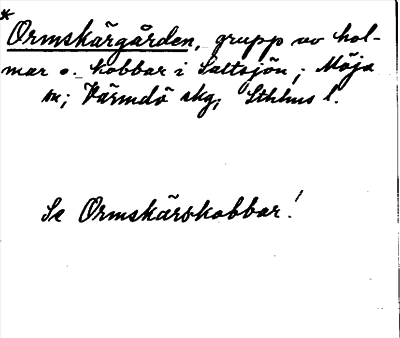 *
Ormskärgården, grupp av hol-
mar o. kobbar i Saltsjön; Möja
sn; Värmdö skg, Sthlms l.
Se Ormskärskobbar!